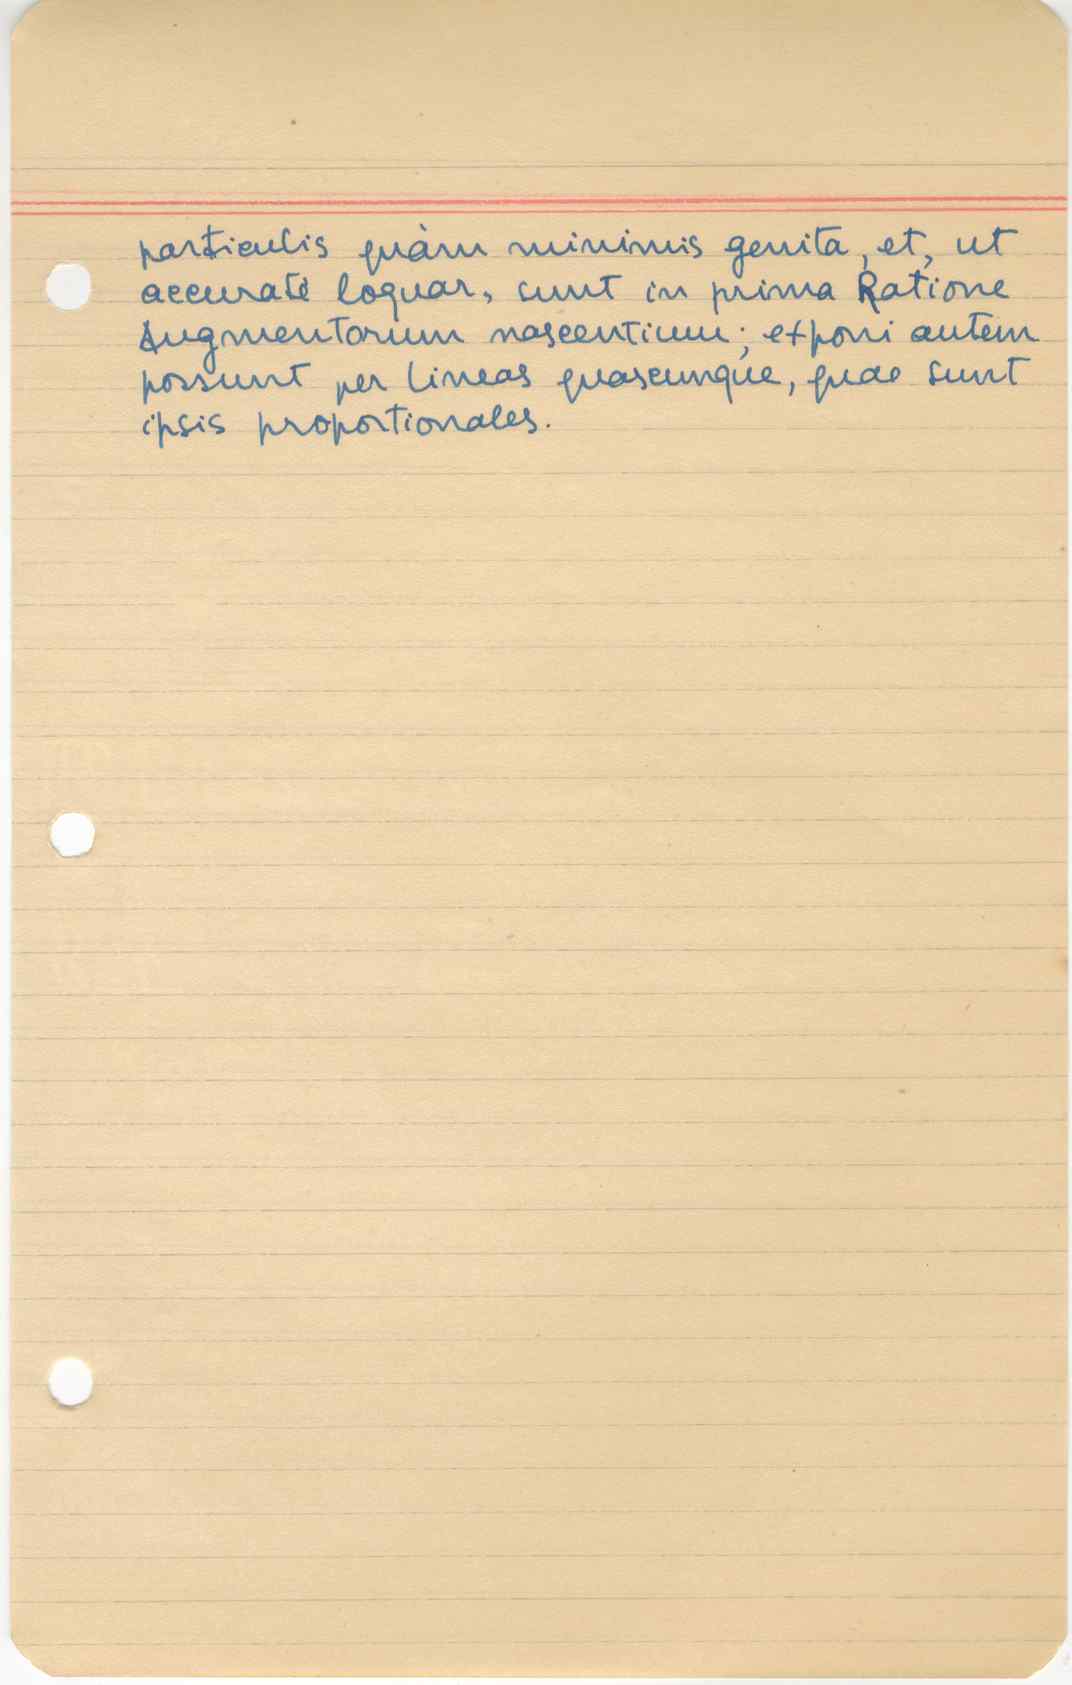 particulis quàm minimis genita, et, ut
accuratè loquar, sunt in prima Ratione
Augmentorum nascentium; exponi autem
possunt per lineas quascunque, quae sunt
ipsis proportionales.